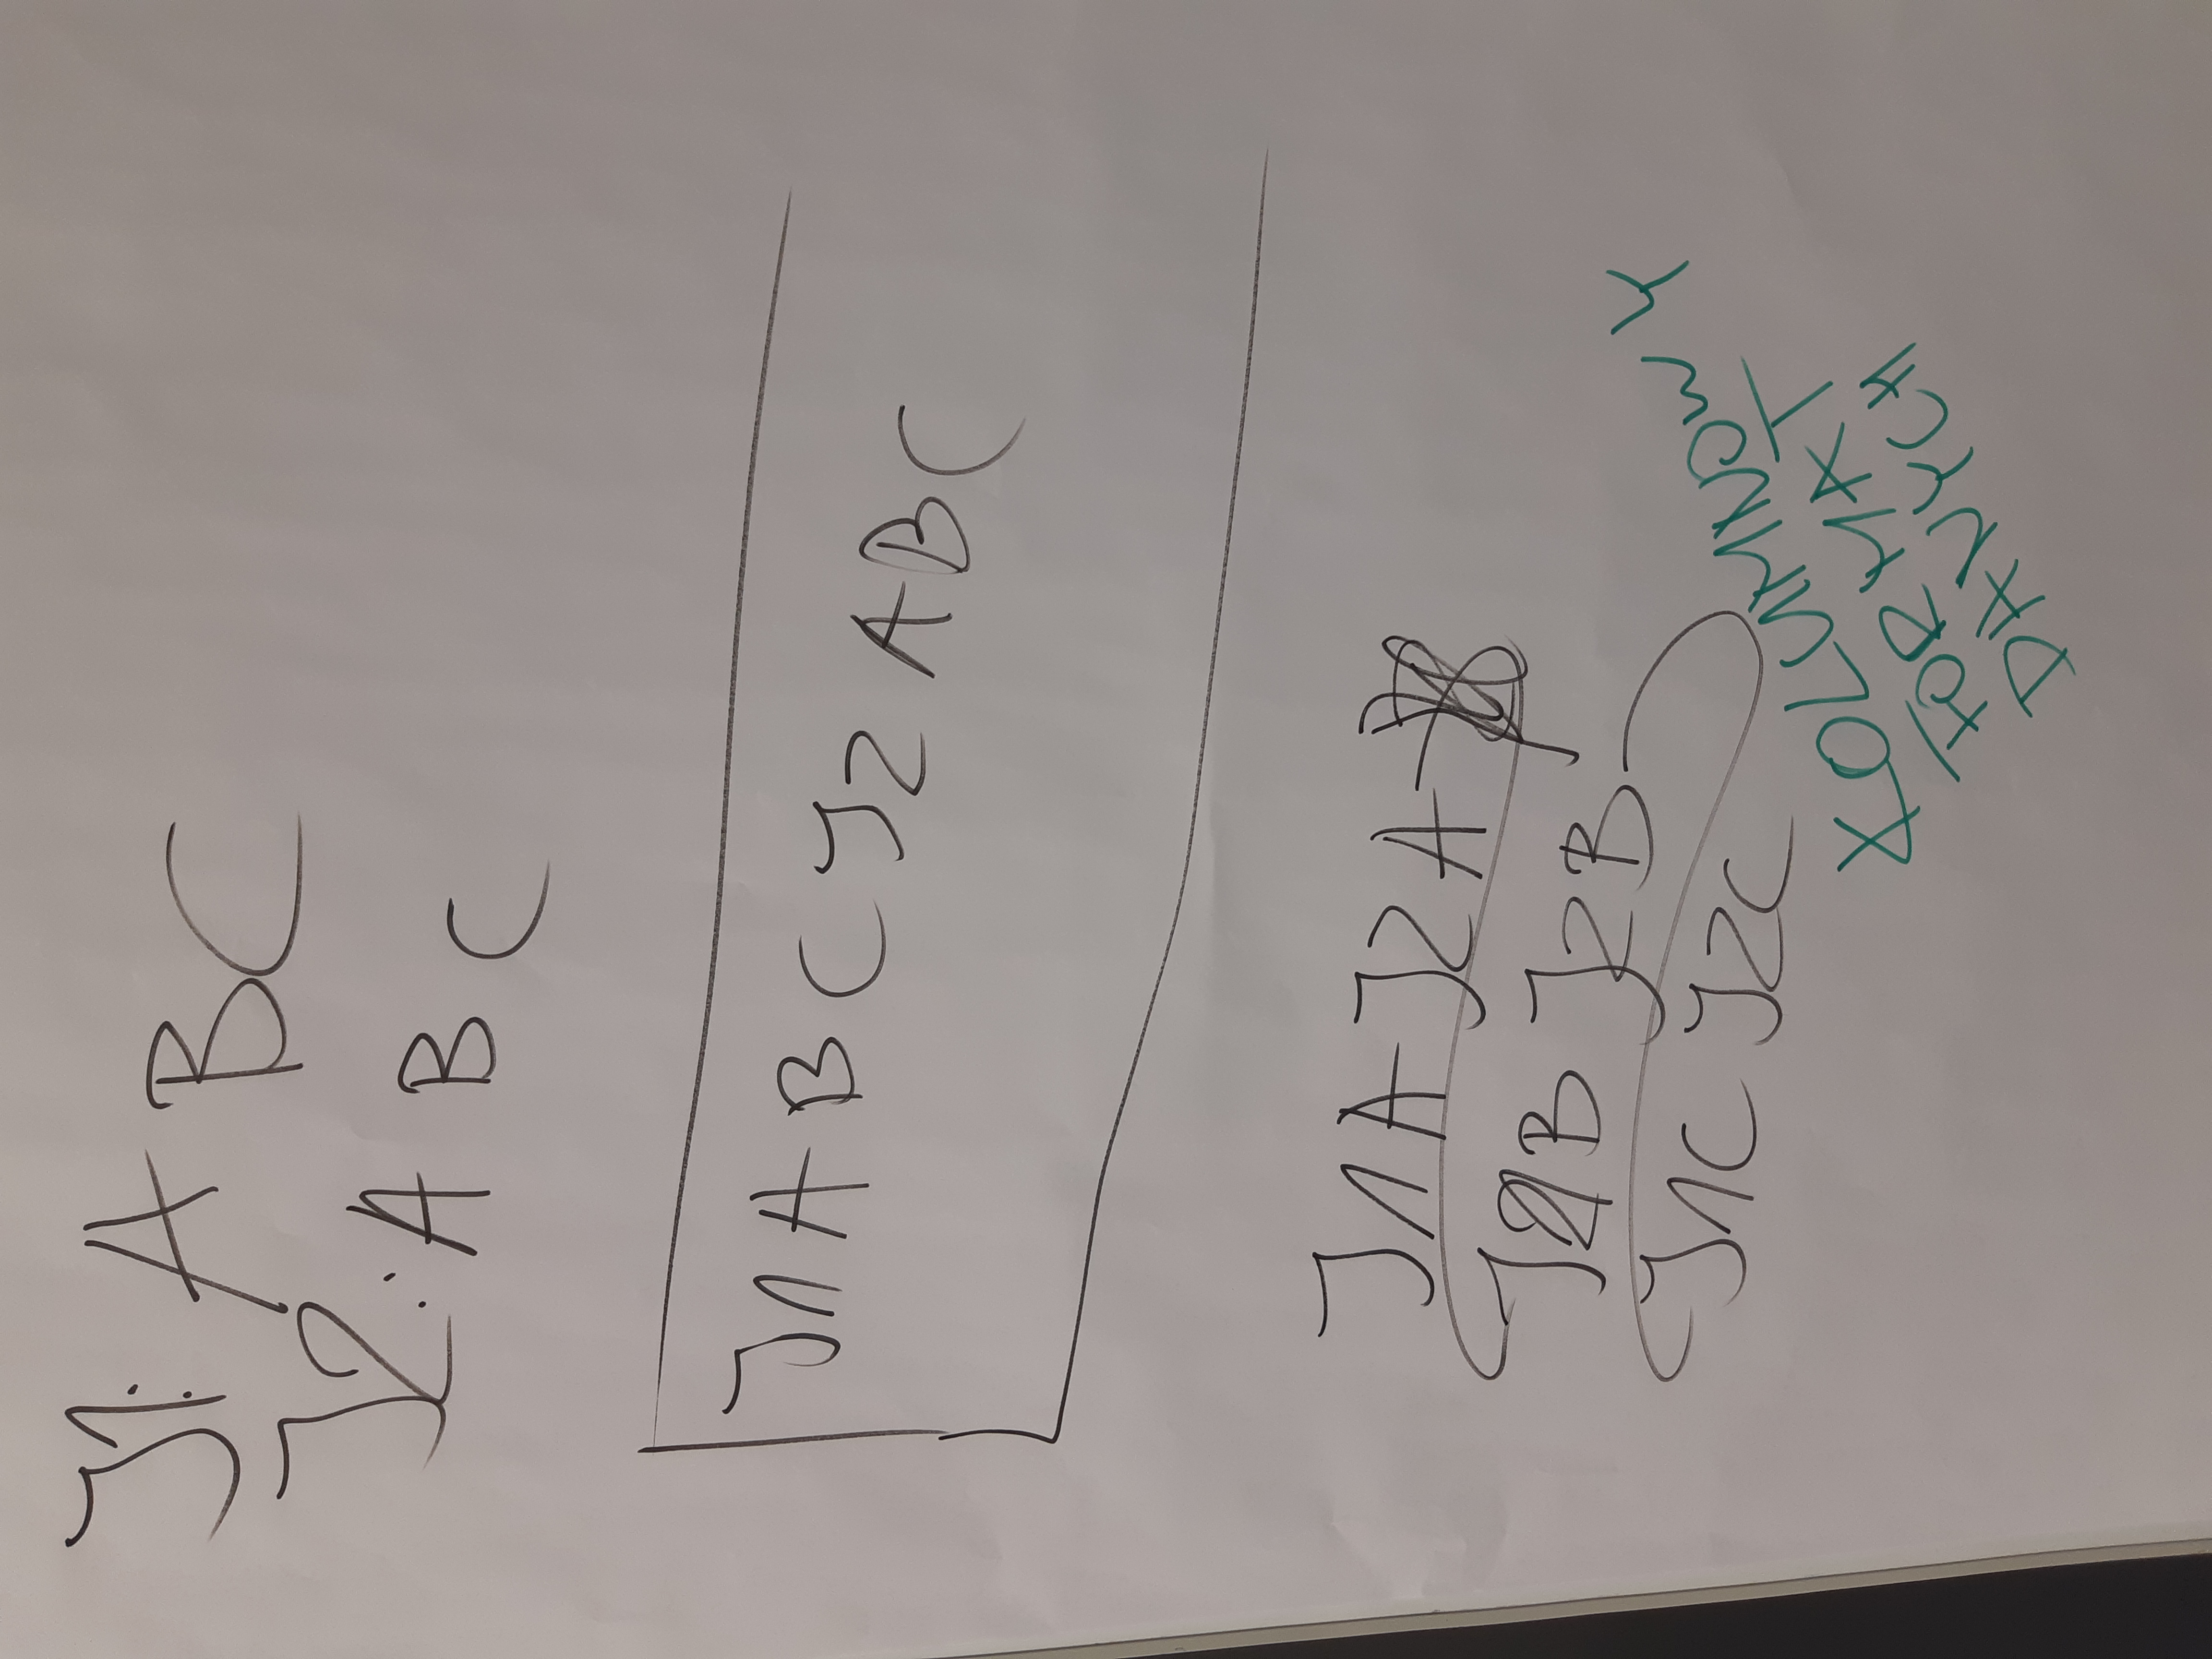 J1: A B C
J2: A B C
J1 A B C J2 A B C
J1A J2A
J1B J2B
J1C J2C
KOLUMNOWY
FORMAT
DANYCH